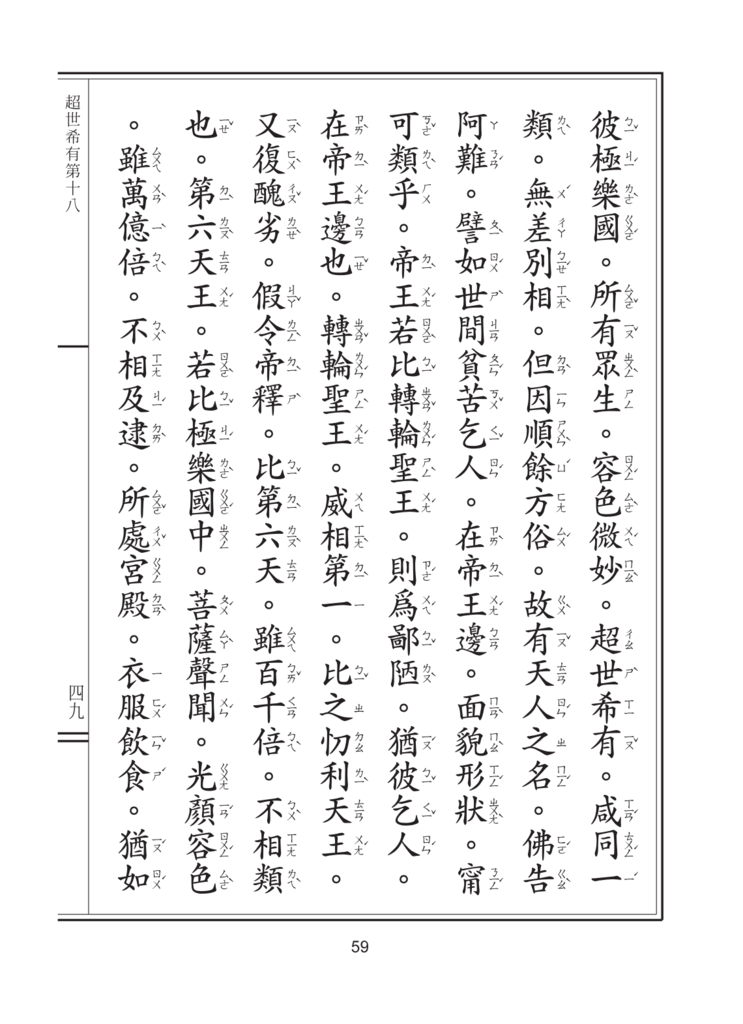 彼極樂國。所有眾生。容色微妙。超世希有。咸同一
類。無差別相。但因順餘方俗。故有天人之名。佛告
阿難。譬如世間貧苦乞人。在帝王邊。面貌形狀。甯
可類乎。帝王若比轉輪聖王。則為鄙陋。猶彼乞人。
在帝王邊也。轉輪聖王。威相第一。比之忉利天王。
又復醜劣。假令帝釋。比第六天。雖百千倍。不相類
也。第六天王。若比極樂國中。菩薩聲聞。光顏容色
。雖萬億倍。不相及逮。所處宮殿。衣服飲食。猶如
超世希有第十八
四九
59